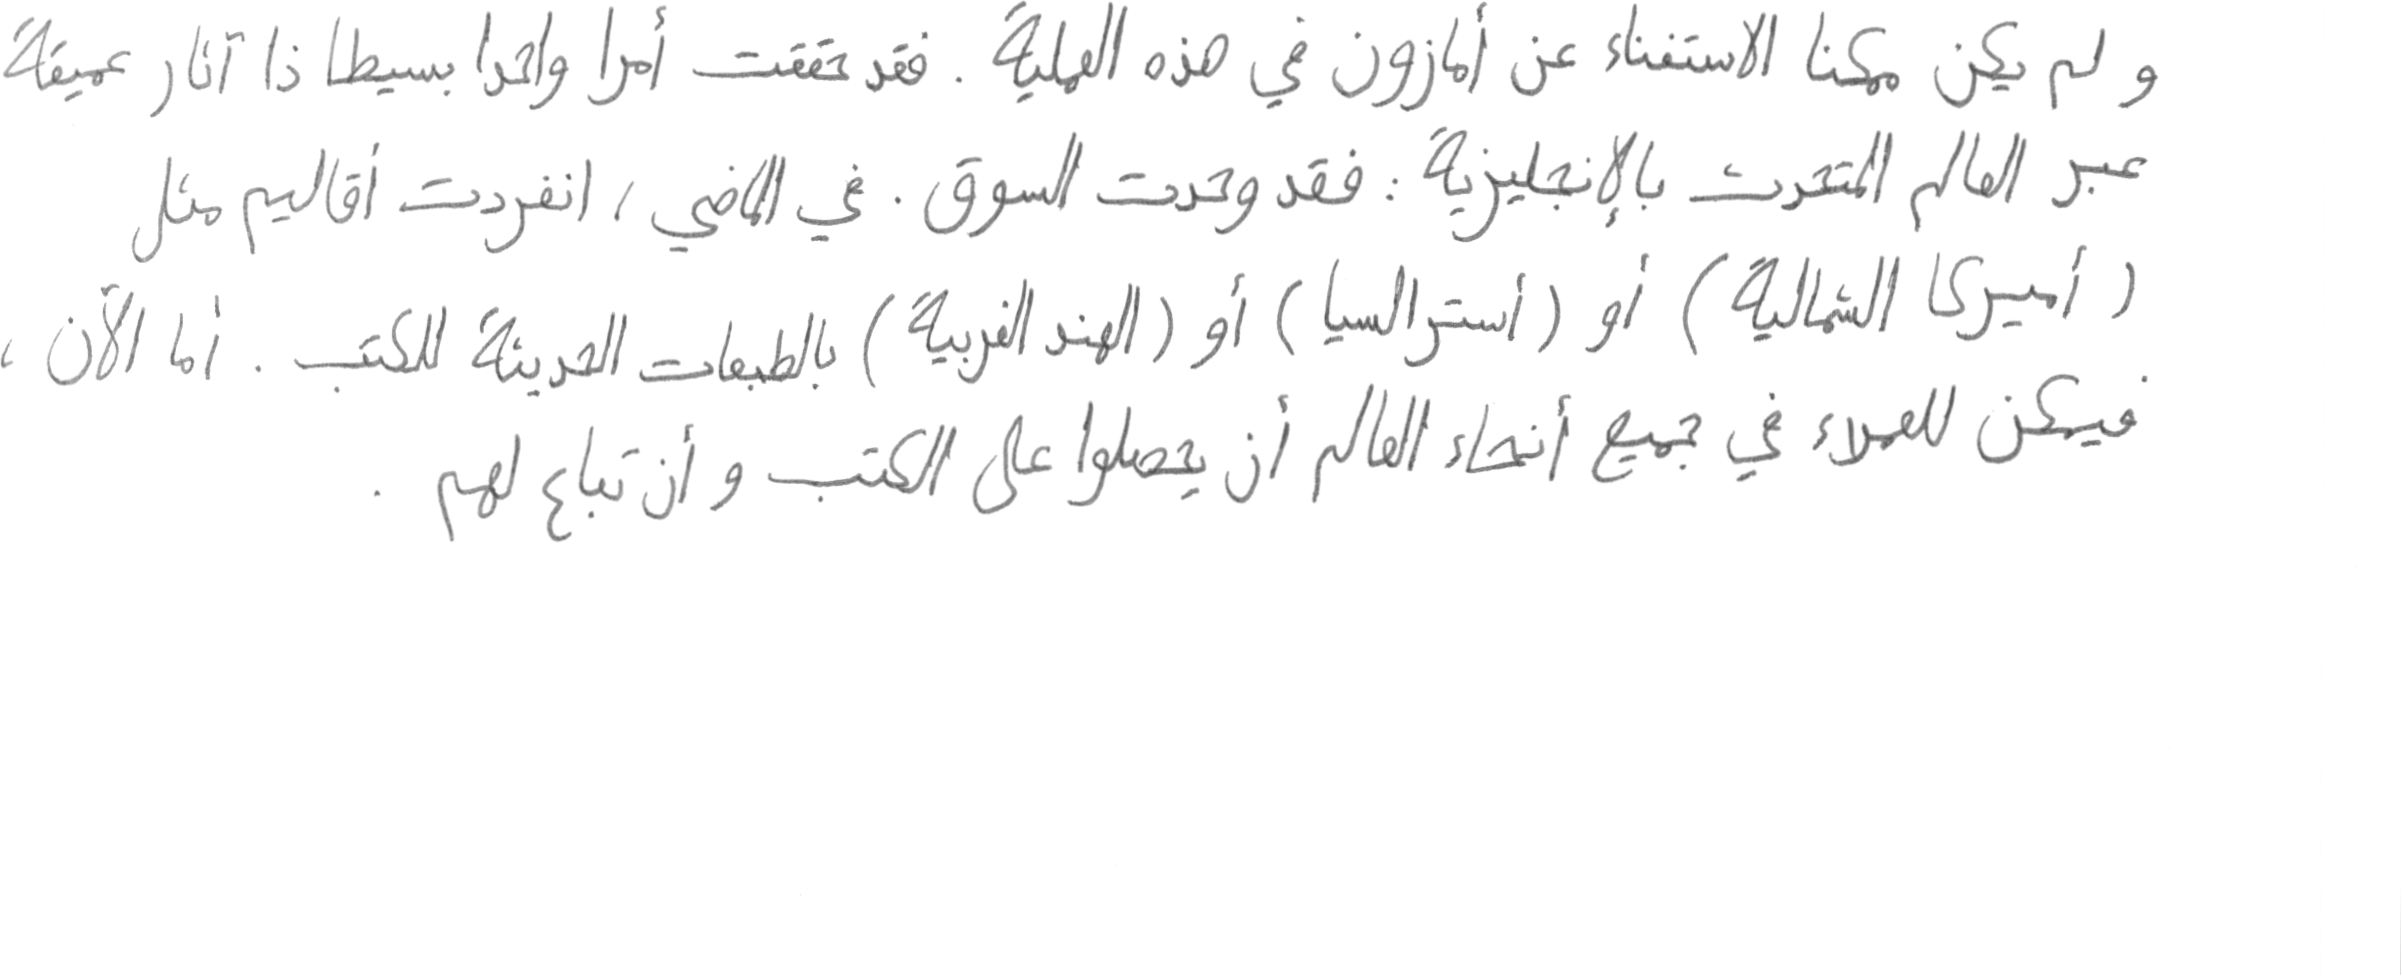 و لم يكن ممكنا الاستغناء عن أمازون في هذه العملية . فقد حققت أمرا واحدا بسيطا ذا آثار عميقة
عبر العالم المتحدث بالإنجليزية : فقد وحدت السوق . في الماضي ، انفردت أقاليم مثل
( أميركا الشمالية ) أو ( أسترالسيا ) أو ( الهند الغربية ) بالطبعات الحديثة للكتب . أما الآن ،
فيمكن للعملاء في جميع أنحاء العالم أن يحصلوا على الكتب و أن تباع لهم .